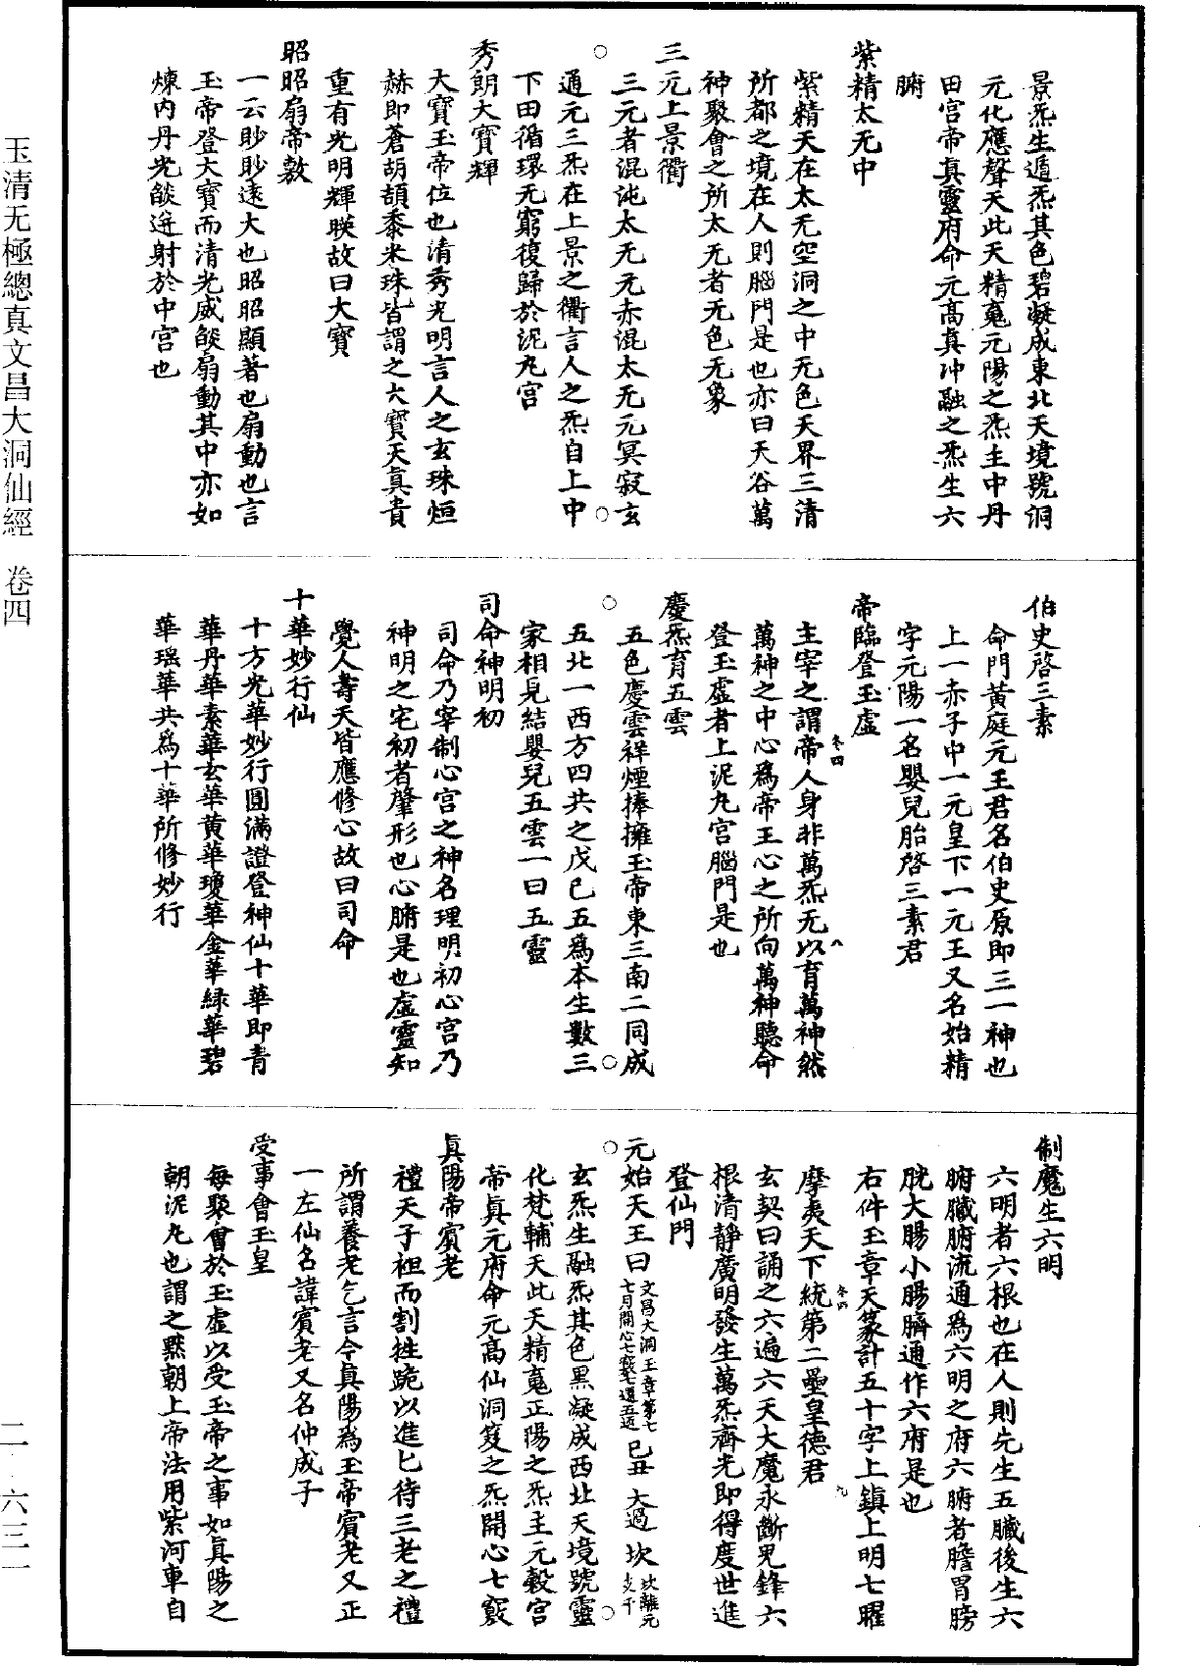 景炁生遁炁其色碧凝成東北天境號洞
元化應聲天此天精嵬元陽之炁主中丹
田宮帝真靈府命元高真沖融之炁生六
腑
紫精太无中
紫精天在太无空洞之中无色天界三清
所都之境在人則腦門是也亦曰天谷萬
神聚會之所太无者无色无象
三元上景衢
三元者混沌太无元赤混太无元冥寂玄
通元三炁在上景之衢言人之炁自上中
下田循環无窮復歸於泥丸宮
秀朗大寶輝
大寶玉帝位也清秀光明言人之玄珠烜
赫即蒼胡頡黍米珠皆謂之大寶天真貴
重有光明輝暎故曰大寶
昭昭扇帝敷
一云眇眇遠大也昭昭顯著也扇動也言
玉帝登大寶而清光威餤扇動其中亦如
煉內丹光餤迸射於中宮也
伯史啓三素
命門黃庭元王君名伯史原即三一神也
上一赤子中一元皇下一元王又名始精
字元陽一名嬰兒胎啓三素君
帝臨登玉虛
主宰之謂帝人身非萬炁无以育萬神然
萬神之中心爲帝王心之所向萬神聽命
登玉虛者上泥丸宮腦門是也
慶炁育五雲
五色慶雲祥煙捧擁玉帝東三南二同成
五北一西方四共之戊己五爲本生數三
家相見結嬰兒五雲一曰五靈
司命神明初
司命乃宰制心宮之神名理明初心宮乃
神明之宅初者肇形也心腑是也虛靈知
覺人壽夭皆應修心故曰司命
十華妙行仙
十方光華妙行圓滿證登神仙十華即青
華丹華素華玄華黃華瓊華金華綠華碧
華瑤華共爲十華所修妙行
制魔生六明
六明者六根也在人則先生五臟後生六
腑臟腑流通爲六明之府六腑者膽胃膀
胱大腸小腸臍通作六府是也
右件玉章天篆計五十字上鎮上明七曜
摩夷天下統第二壘皇德君
玄契曰誦之六遍六天大魔永斷鬼鋒六
根清靜廣明發生萬炁齊光即得度世進
登仙門
元始天王曰 文昌大洞玉章第七 七月開心七竅七道五返 己丑 大過 坎 坎離元
玄炁生融炁其色黑凝成西北天境號靈
化梵輔天此天精嵬正陽之炁主元穀宮
帝真元府命元高仙洞笈之炁開心七竅
真陽帝賓老
禮天子袒而割牲跪以進匕待三老之禮
所謂養老乞言今真陽爲玉帝賓老又正
一左仙名諱賓老又名仲成子
受事會玉皇
每聚會於玉虛以受玉帝之事如真陽之
朝泥丸也謂之默朝上帝法用紫河車自
玉清无極總真文昌大洞仙經 卷四
二·六三一